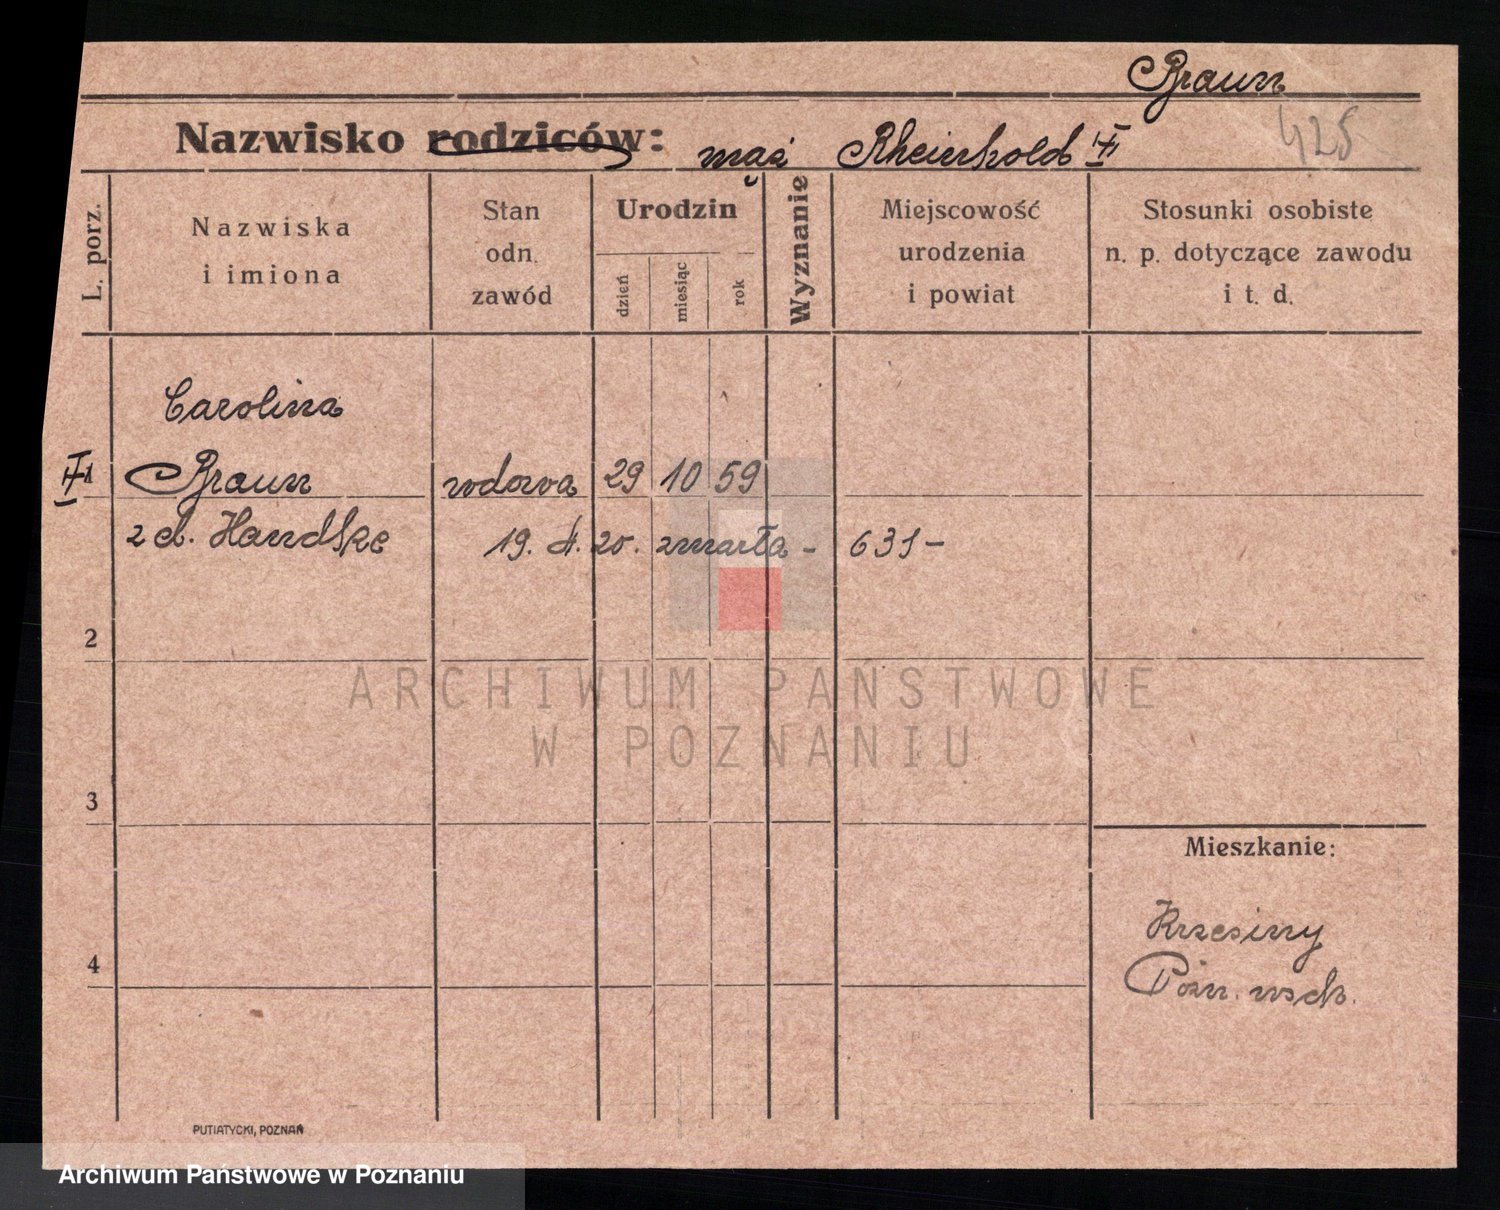 Braun
Nazwisko rodziców: mąż Rheinhold
428
L. porz.
Nazwiska
i imiona
Stan
odn.
zawód
Urodzin
dzień
miesiąc
rok
Wyznanie
Miejscowość
urodzenia
i powiat
Stosunki osobiste
n. p. dotyczące zawodu
i t. d.
Carolina
1 Braun wdowa 29 10 59
z d. Handtke 19. 4. 20. zmarła - 631 -
2
3
4
Mieszkanie:
Krzesiny
Pozn. wsch.
PUTIATYCKI, POZNAŃ
ARCHIWUM PAŃSTWOWE
W POZNANIU
Archiwum Państwowe w Poznaniu